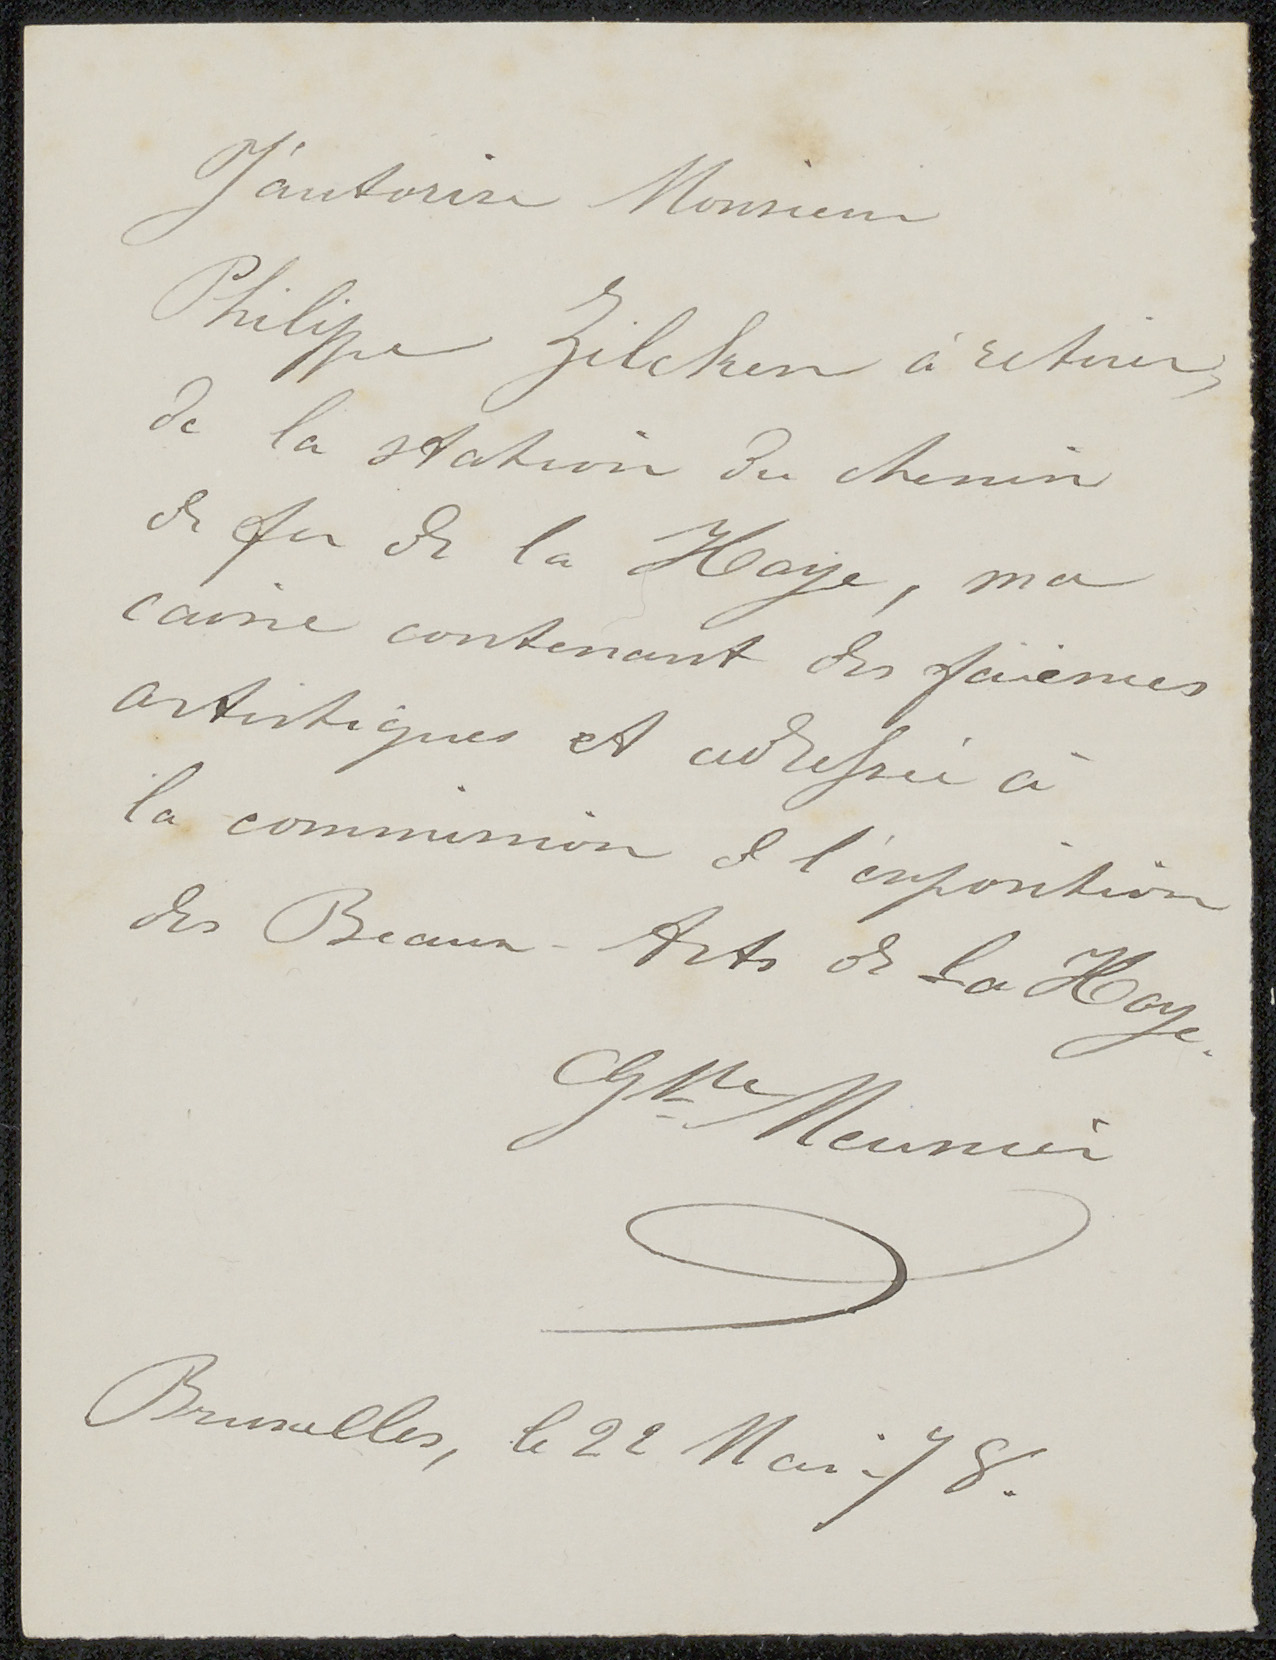 J'autorise Monsieur
Philippe Zilcken à retirer,
de la station du chemin
de fer de la Haye, ma
caisse contenant des faïences
artistiques et adressée à
la commission de l'exposition
des Beaux-Arts de La Haye.
Meunier
Bruxelles, le 22 Mai 78.